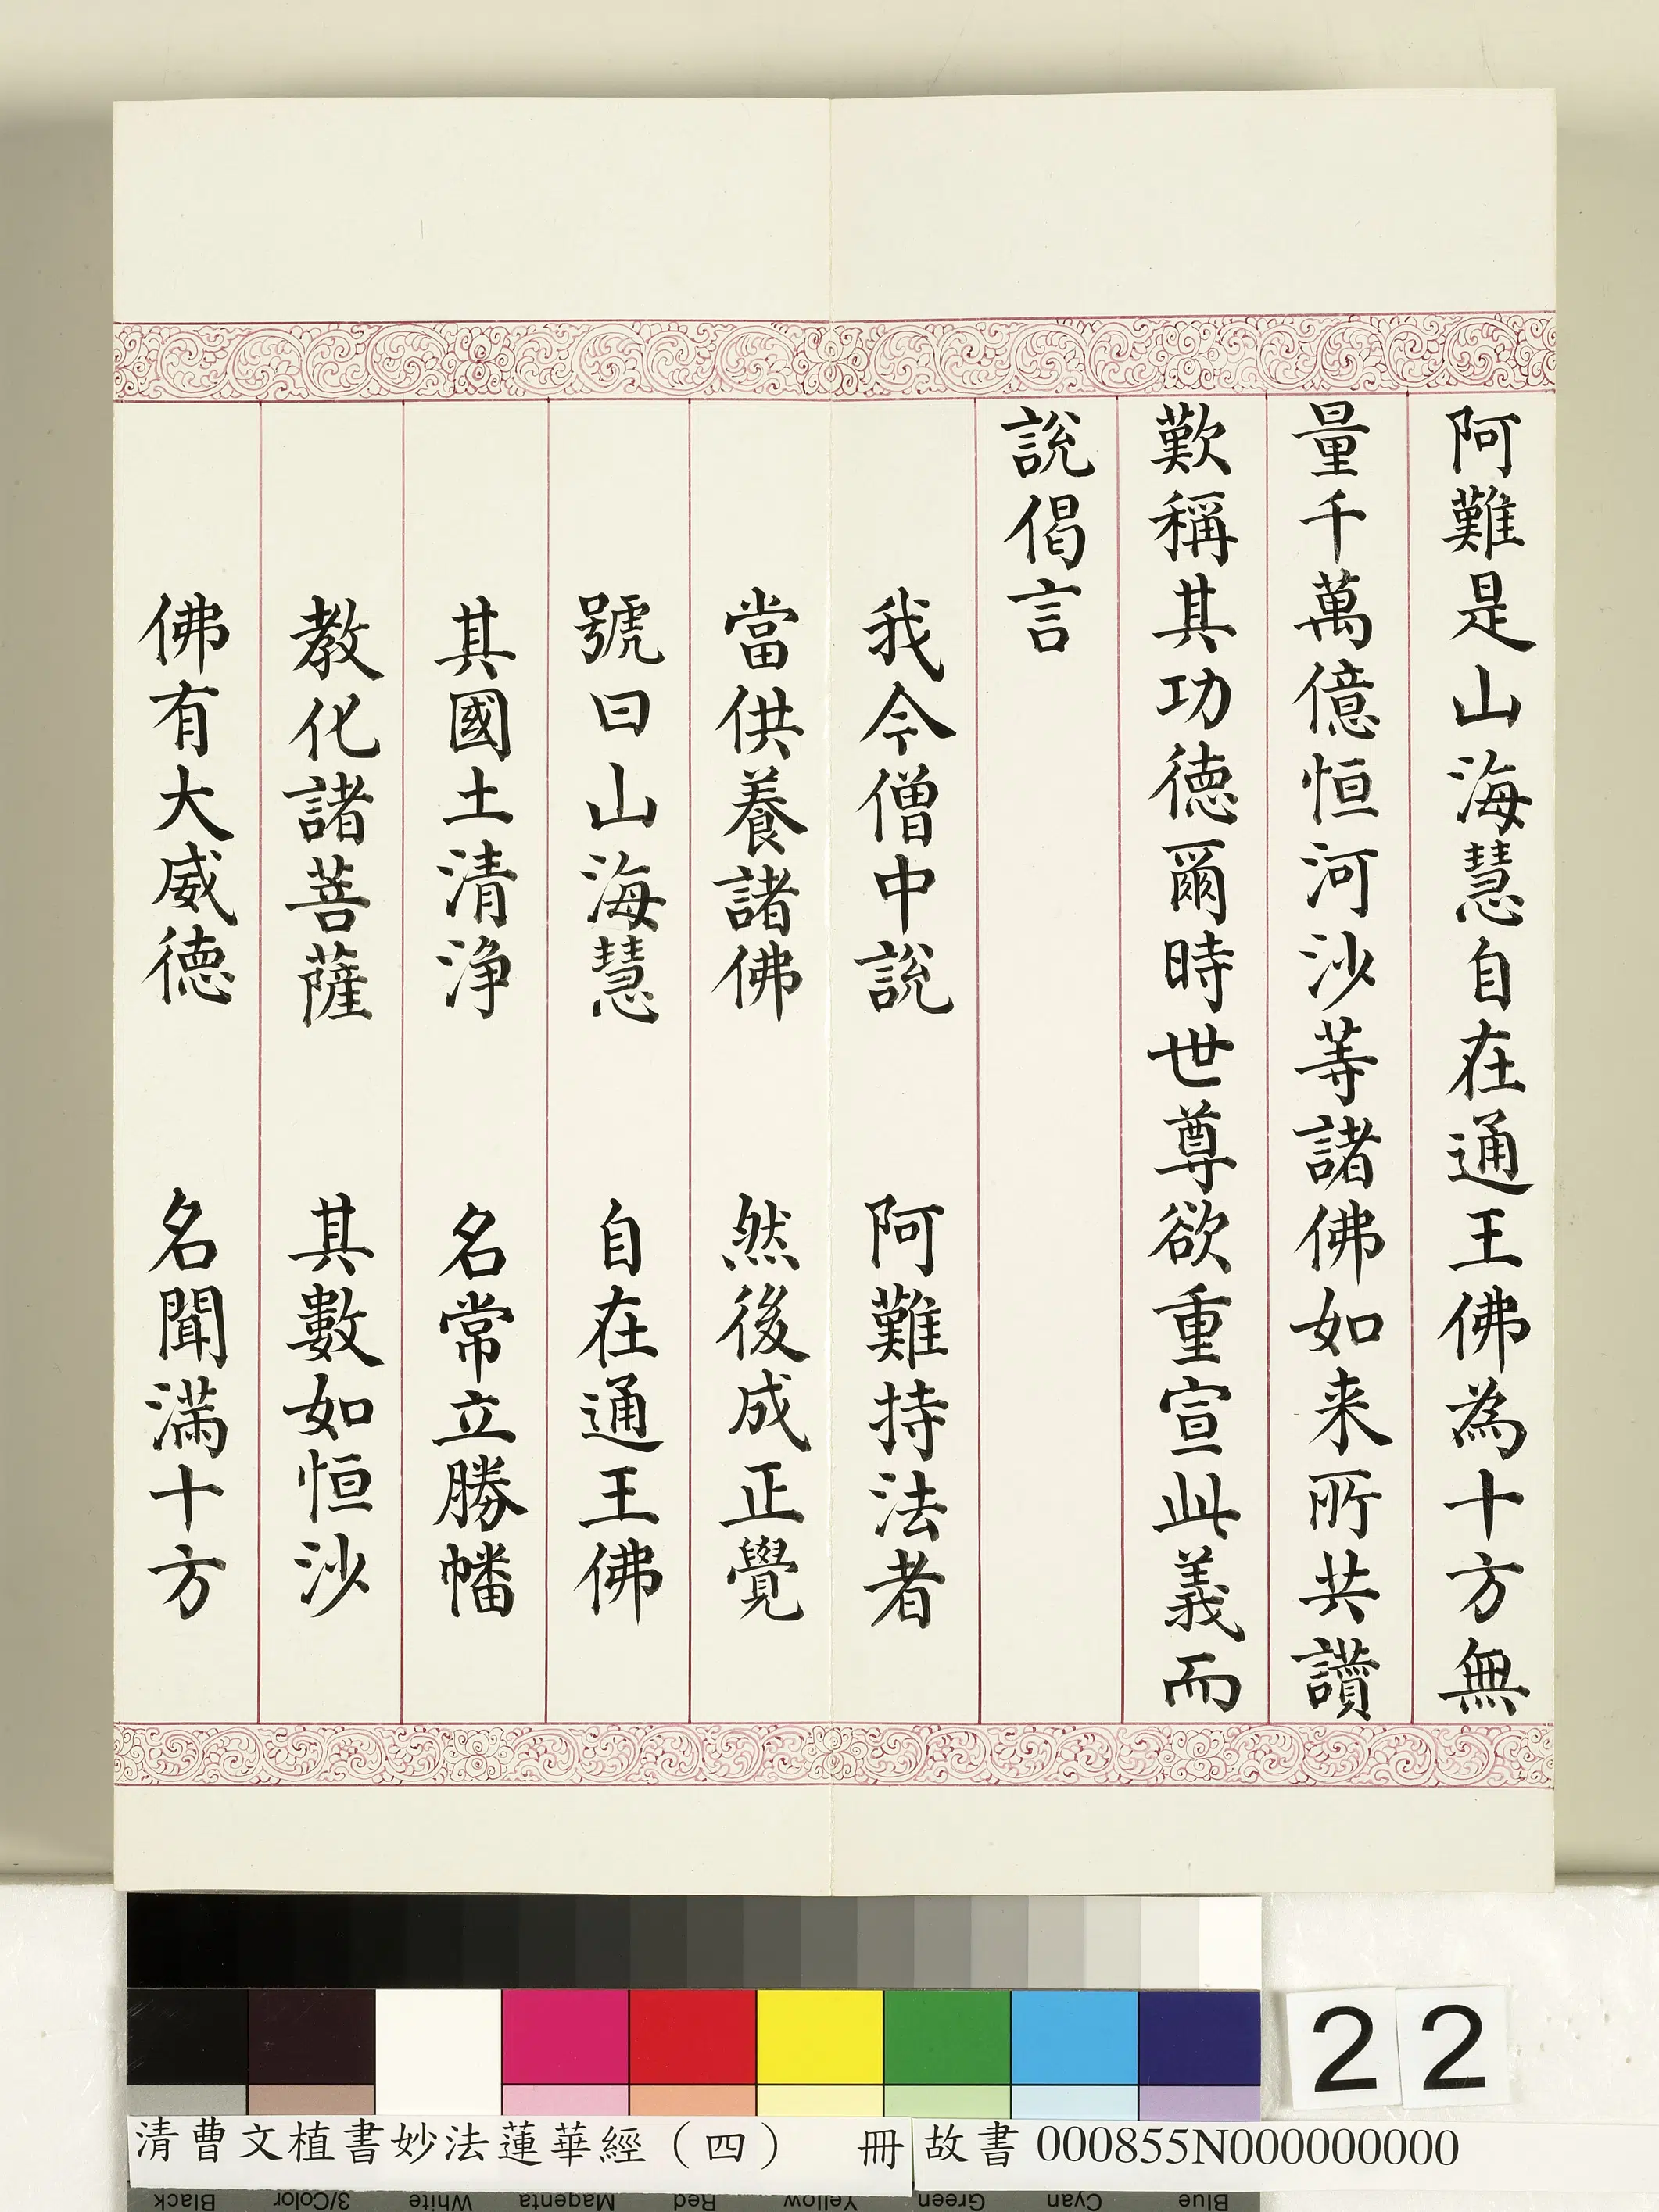 阿難是山海慧自在通王佛為十方無
量千萬億恒河沙等諸佛如来所共讚
歎稱其功德爾時世尊欲重宣此義而
說偈言
我今僧中說　阿難持法者
當供養諸佛　然後成正覺
號曰山海慧　自在通王佛
其國土清淨　名常立勝幡
教化諸菩薩　其數如恒沙
佛有大威德　名聞滿十方
22
清曹文植書妙法蓮華經（四）　冊
故書 000855N000000000
Black 3/Color White Magenta Red Yellow Green Cyan Blue